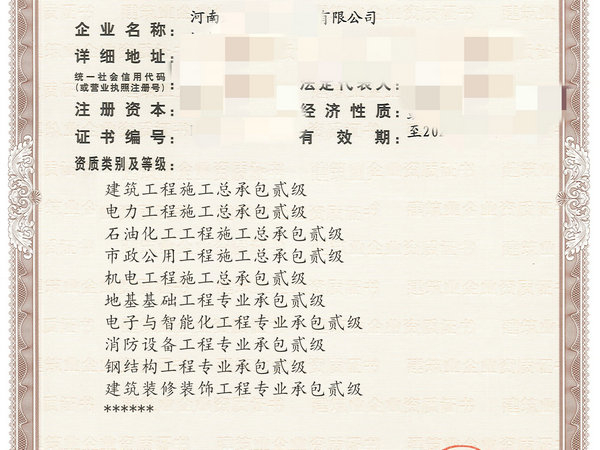 企业名称: 河南 有限公司
详细地址:
统一社会信用代码
(或营业执照注册号): 法定代表人:
注册资本: 经济性质:
证书编号: 有效期: 至20
资质类别及等级:
建筑工程施工总承包贰级
电力工程施工总承包贰级
石油化工工程施工总承包贰级
市政公用工程施工总承包贰级
机电工程施工总承包贰级
地基基础工程专业承包贰级
电子与智能化工程专业承包贰级
消防设备工程专业承包贰级
钢结构工程专业承包贰级
建筑装修装饰工程专业承包贰级
******